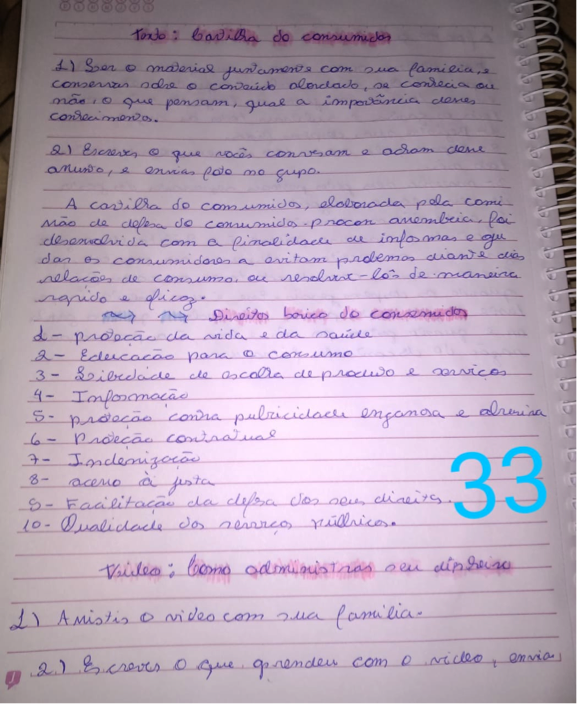 Texto: Cartilha do consumidor
1) Ler o material juntamente com sua família, e
conversar sobre o conteúdo abordado, se conhecia ou
não, o que pensam, qual a importância desses
conhecimentos.
2) Escrever o que vocês conversam e acham desse
assunto, e enviar foto no grupo.
A cartilha do consumidor, elaborada pela comi
ssão de defesa do consumidor procon assembleia, foi
desenvolvida com a finalidade de informar e aju
dar os consumidores a evitam problemas diante das
relações de consumo, ou resolver-los de maneira
rapido e eficaz.
Direitos basico do consumidor
1- proteção da vida e da saúde
2- Educacação para o consumo
3- Liberdade de escolha de produto e serviços
4- Informação
5- proteção contra publicidade enganosa e abusiva
6- Proteção contratual
7- Indenização
8- acesso à justa
9- Facilitação da defesa dos seus direitos.
10- Qualidade dos serviços públicos.
33
Video: Como administrar seu dinheiro
1) Assistir o video com sua família.
2) Escrever o que aprendeu com o video, envia